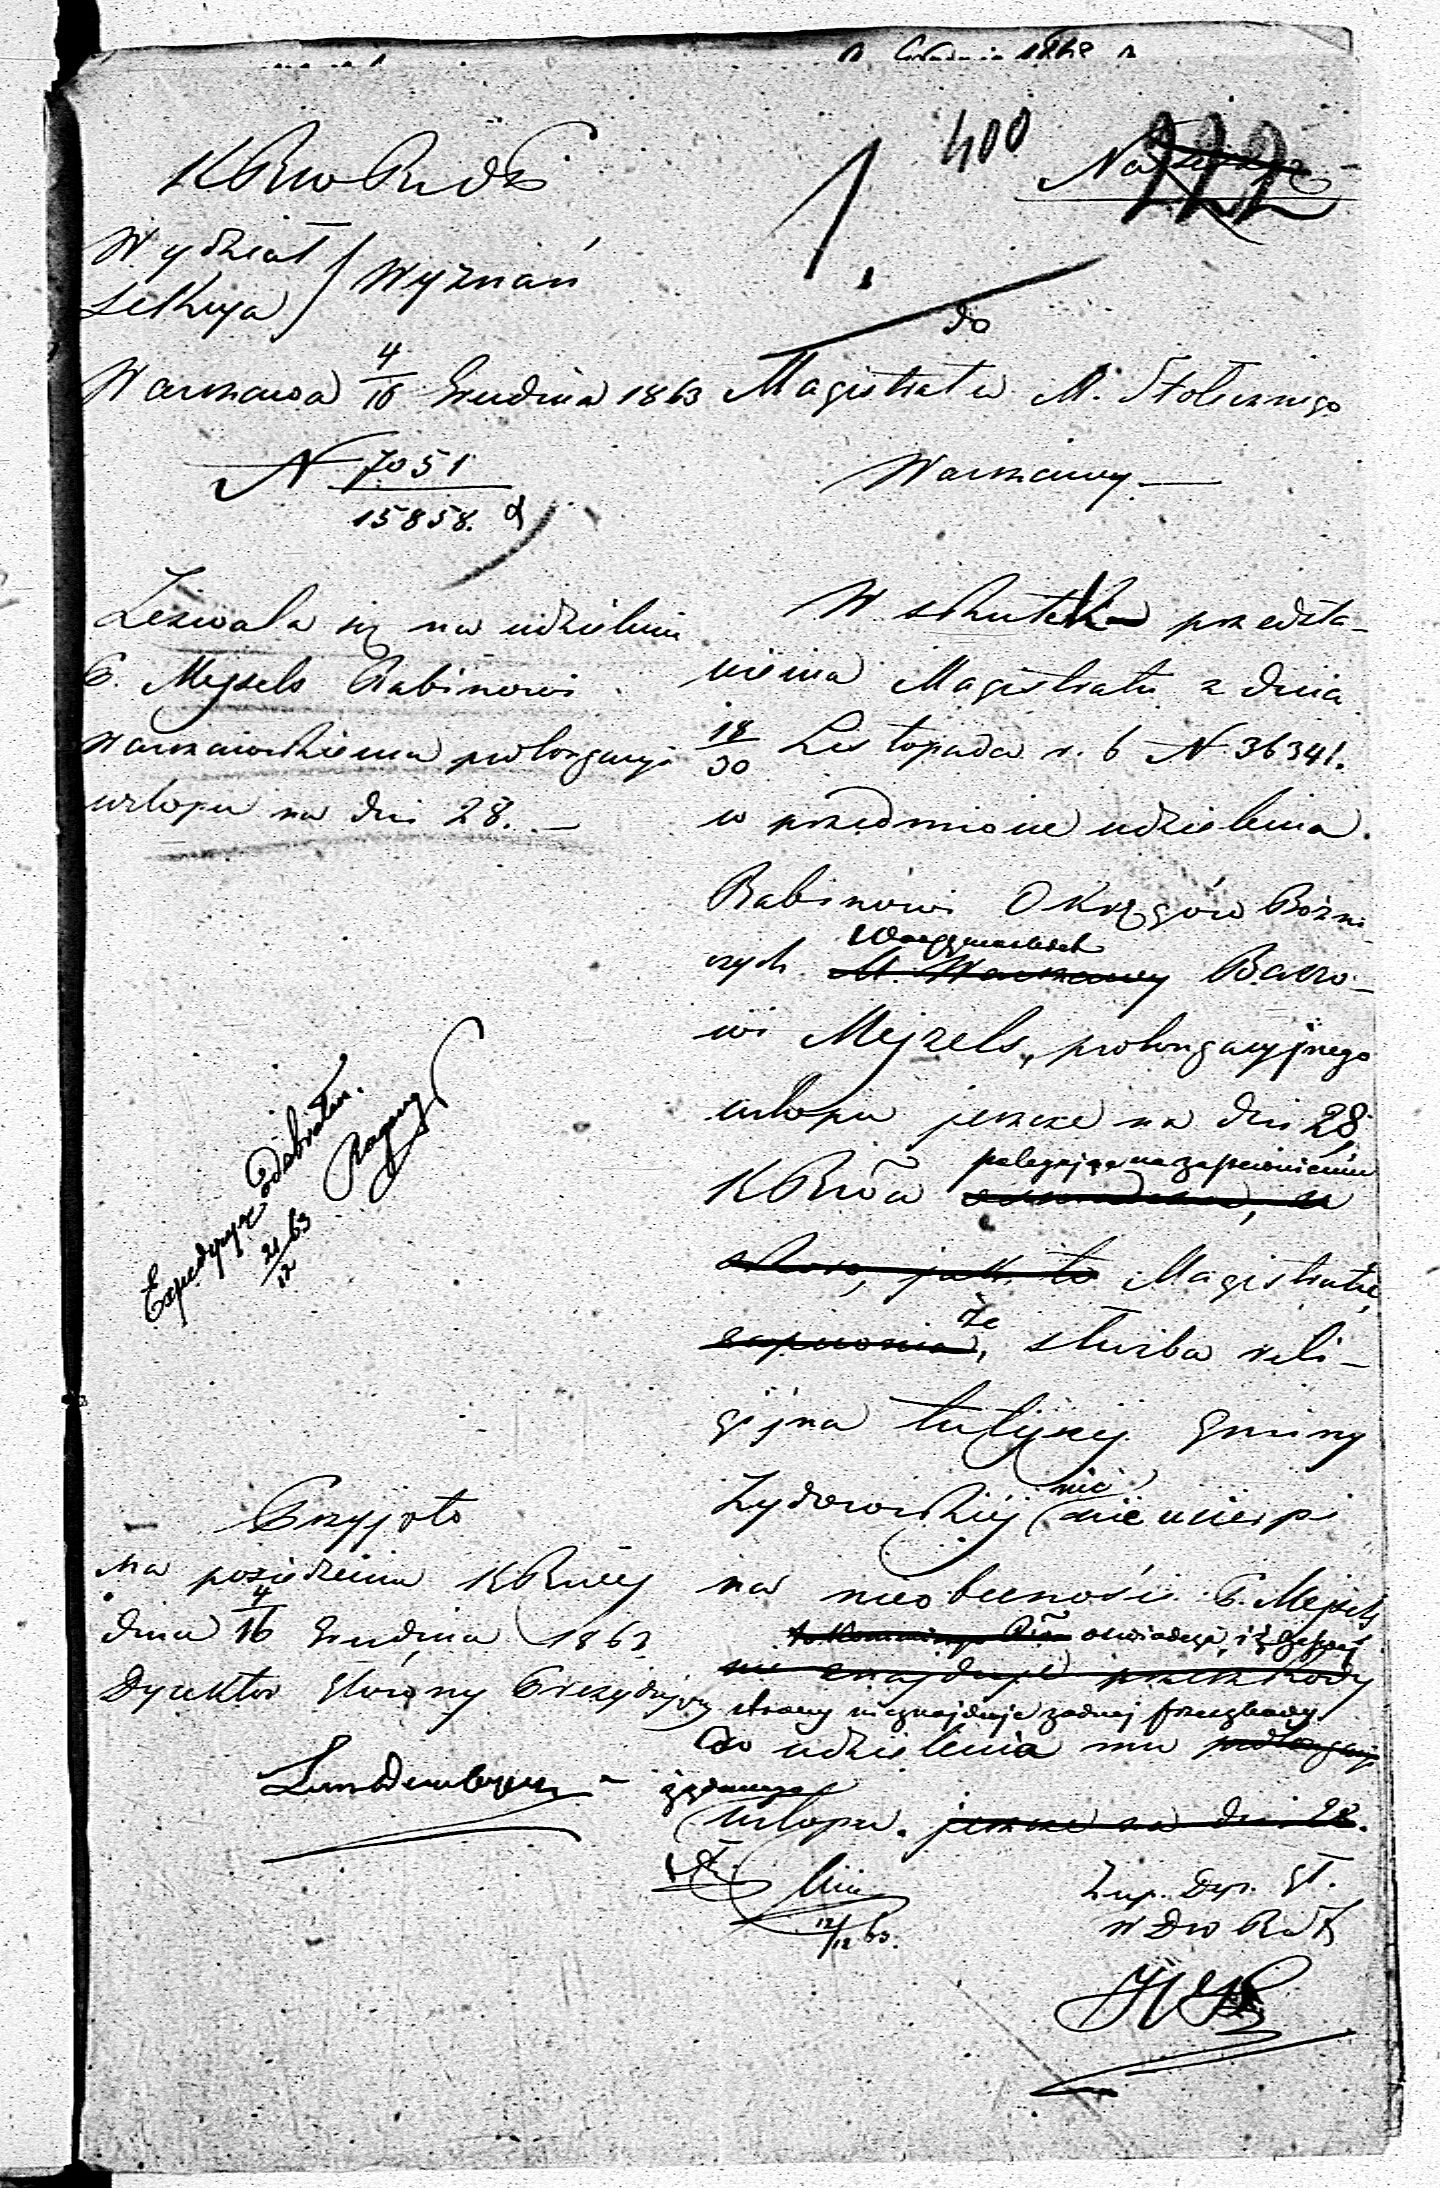 Grudnia 1863 r
400
1.
222
KRwo Rudk
Wydział
Sekcya
Wyznań
Warszawa 4/16 Grudnia 1863
N 7051
15858.
do
Magistratu M. Stołecznego
Warszawy.
Zezwala się na udzielenie
P. Mejzels Rabinowi
warszawskiemu prolongacyi
urlopu na dni 28.
W skutek przedsta-
wienia Magistratu z dnia
18/30 Listopada r. b N 36341.
w przedmiocie udzielenia
Rabinowi Okręgów Bożni-
czych Warszawskich M. Warszawy Bero-
wi Mejzels, prolongacyjnego
urlopu jeszcze na dni 28,
polegając na zapewnieniu
KRwa
skoro, jak to Magistratu
zapewnia, że służba reli-
gijna tutejszej gminy
Żydowskiej nic nie ucierpi
na nieobecności P. Mejzels
oświadcza, iż ze swej
nie znajduje przeszkody
strony nie znajduje żadnej przeszkody
do udzielenia mu prolongacyi
żądanego
urlopu. jeszcze na dni 28.
Expedycyę odebrałem.
21/12 63
Przyjęto
na posiedzeniu KRwej
dnia 4/16 Grudnia 1863
Dyrektor Główny Prezydujący
12/12 63.
Zup. Dyr. Gł.